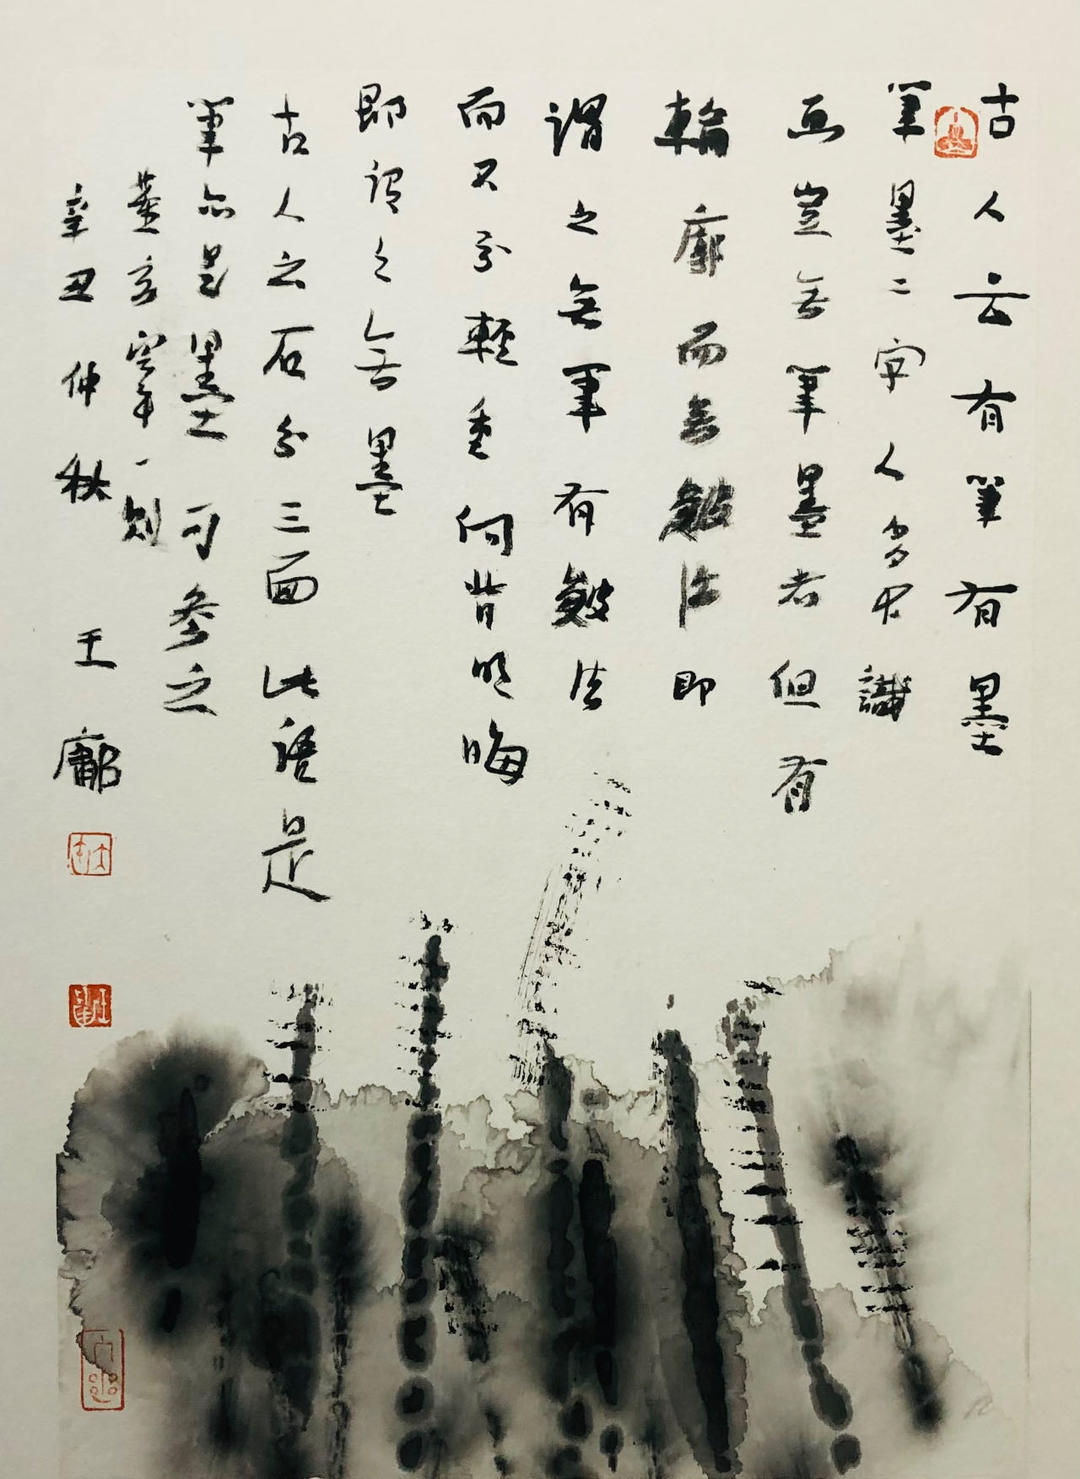 古人云有筆有墨
筆墨二字人多不識
画豈無筆墨者但有
輪廓而無皴法即
謂之無筆有皴法
而不分輕重向背明晦
即謂之無墨
古人云石分三面此語是
筆亦是墨可參之
董玄宰一則
辛丑仲秋 王